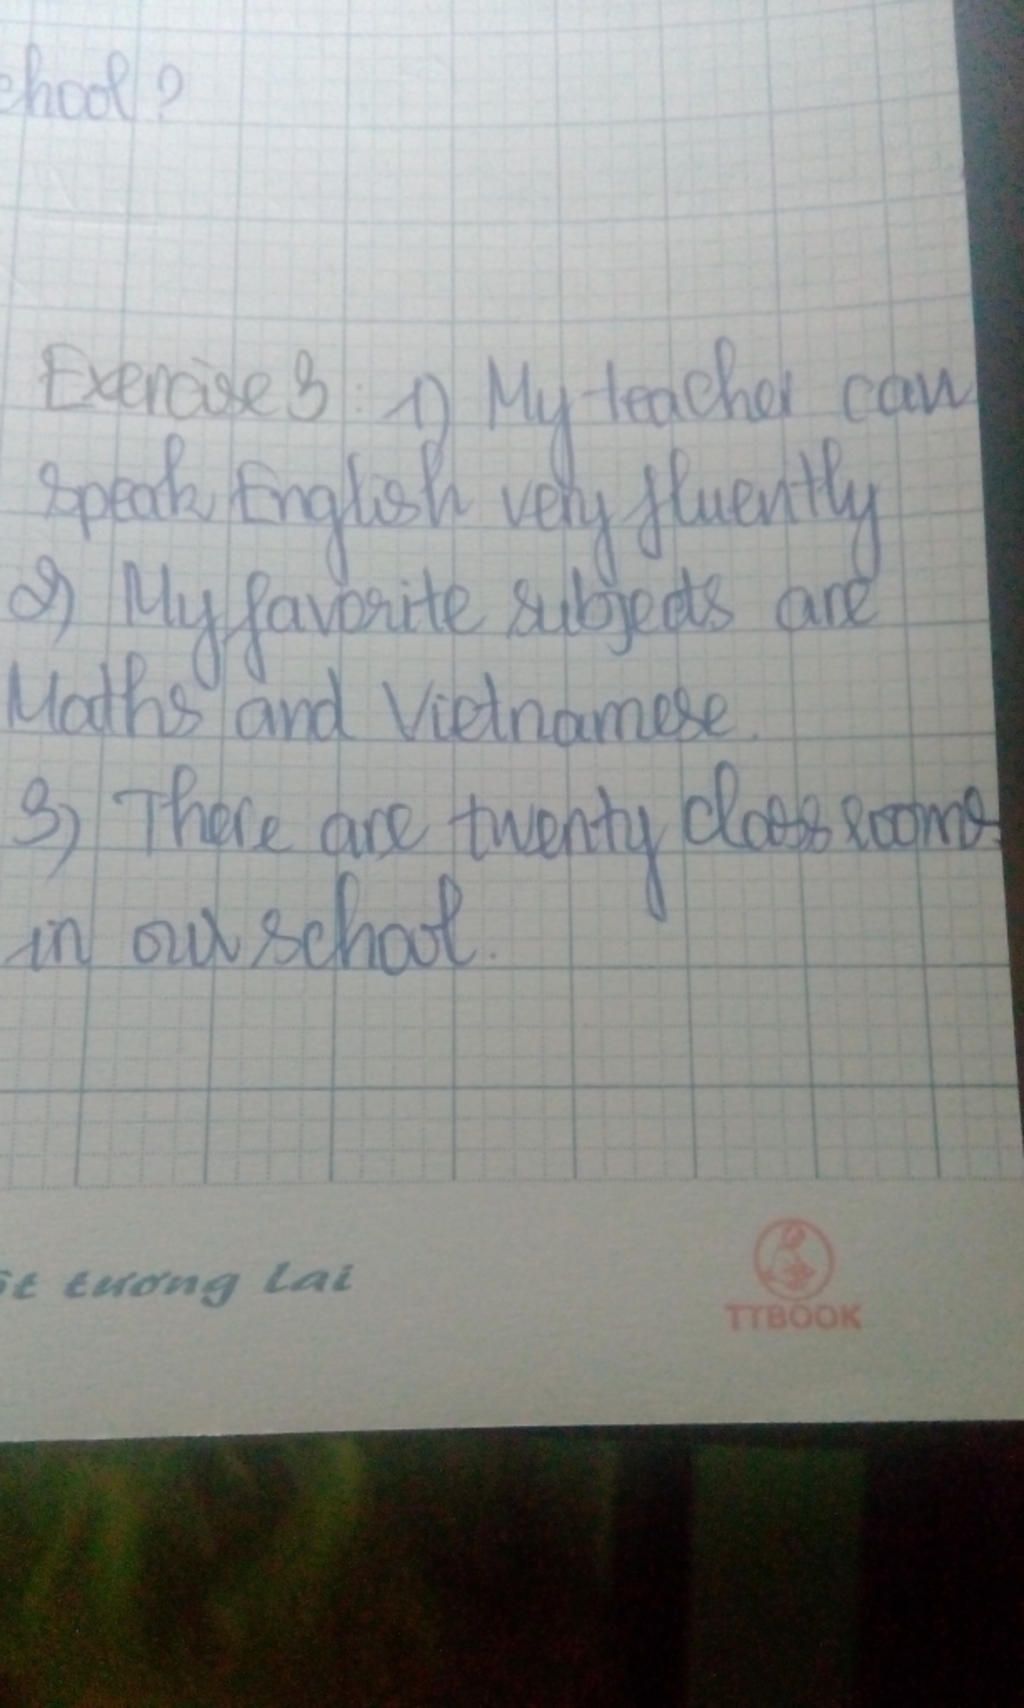 chool?
Exercise 3: 1) My teacher can
speak English very fluently
2) My favorite subjects are
Maths and Vietnamese.
3) There are twenty classrooms
in our school.
tương lai
TTBOOK